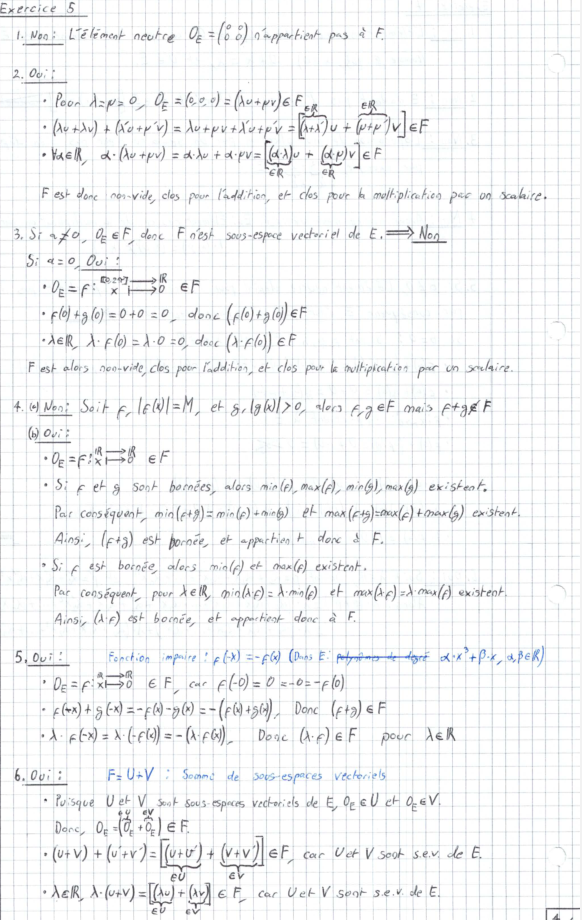 Exercice 5
1. Non : L'élément neutre O_E = (0 0 / 0 0) n'appartient pas à F.
2. Oui :
• Pour λ=μ=0, O_E = (0,0,0) = (λu+μv) ∈ F
• (λu+λv) + (λ'u+μ'v) = λu+μv+λ'u+μ'v = [(λ+λ')u + (μ+μ')v] ∈ F
∈ℝ ∈ℝ
• ∀α∈ℝ, α·(λu+μv) = α·λu + α·μv = [(α·λ)u + (α·μ)v] ∈ F
∈ℝ ∈ℝ
F est donc non-vide, clos pour l'addition, et clos pour la multiplication par un scalaire.
3. Si a≠0, O_E ∈ F, donc F n'est sous-espace vectoriel de E. ⟹ Non
Si a=0, Oui :
• O_E = f : x ↦ 0 ∈ F
• f(0)+g(0) = 0+0 = 0, donc (f(0)+g(0)) ∈ F
• λ∈ℝ, λ·f(0) = λ·0 = 0, donc (λ·f(0)) ∈ F
F est alors non-vide, clos pour l'addition, et clos pour la multiplication par un scalaire.
4. (a) Non : Soit f, |f(x)|=M, et g, |g(x)|>0, alors f,g∈F mais f+g∉F
(b) Oui :
• O_E = f : ℝ→ℝ x↦0 ∈ F
• Si f et g sont bornées, alors min(f), max(f), min(g), max(g) existent.
Par conséquent, min(f+g) = min(f)+min(g) et max(f+g)=max(f)+max(g) existent.
Ainsi, (f+g) est bornée, et appartient donc à F.
• Si f est bornée, alors min(f) et max(f) existent.
Par conséquent, pour λ∈ℝ, min(λ·f) = λ·min(f) et max(λ·f) = λ·max(f) existent.
Ainsi, (λ·f) est bornée, et appartient donc à F.
5. Oui : Fonction impaire : f(-x) = -f(x) (Dans E: polynômes de degré α·x³+β·x, α,β∈ℝ)
• O_E = f : ℝ→ℝ x↦0 ∈ F, car f(-0) = 0 = -0 = -f(0)
• f(-x) + g(-x) = -f(x)-g(x) = -(f(x)+g(x)), Donc (f+g) ∈ F
• λ·f(-x) = λ·(-f(x)) = -(λ·f(x)), Donc (λ·f) ∈ F pour λ∈ℝ
6. Oui : F=U+V : Somme de sous-espaces vectoriels
• Puisque U et V sont sous-espaces vectoriels de E, O_E∈U et O_E∈V.
∈U ∈V
Donc, O_E = (O_E + O_E) ∈ F.
• (u+v) + (u'+v') = [(u+u') + (v+v')] ∈ F, car U et V sont s.e.v. de E.
∈U ∈V
• λ∈ℝ, λ·(u+v) = [(λu) + (λv)] ∈ F, car U et V sont s.e.v. de E.
∈U ∈V